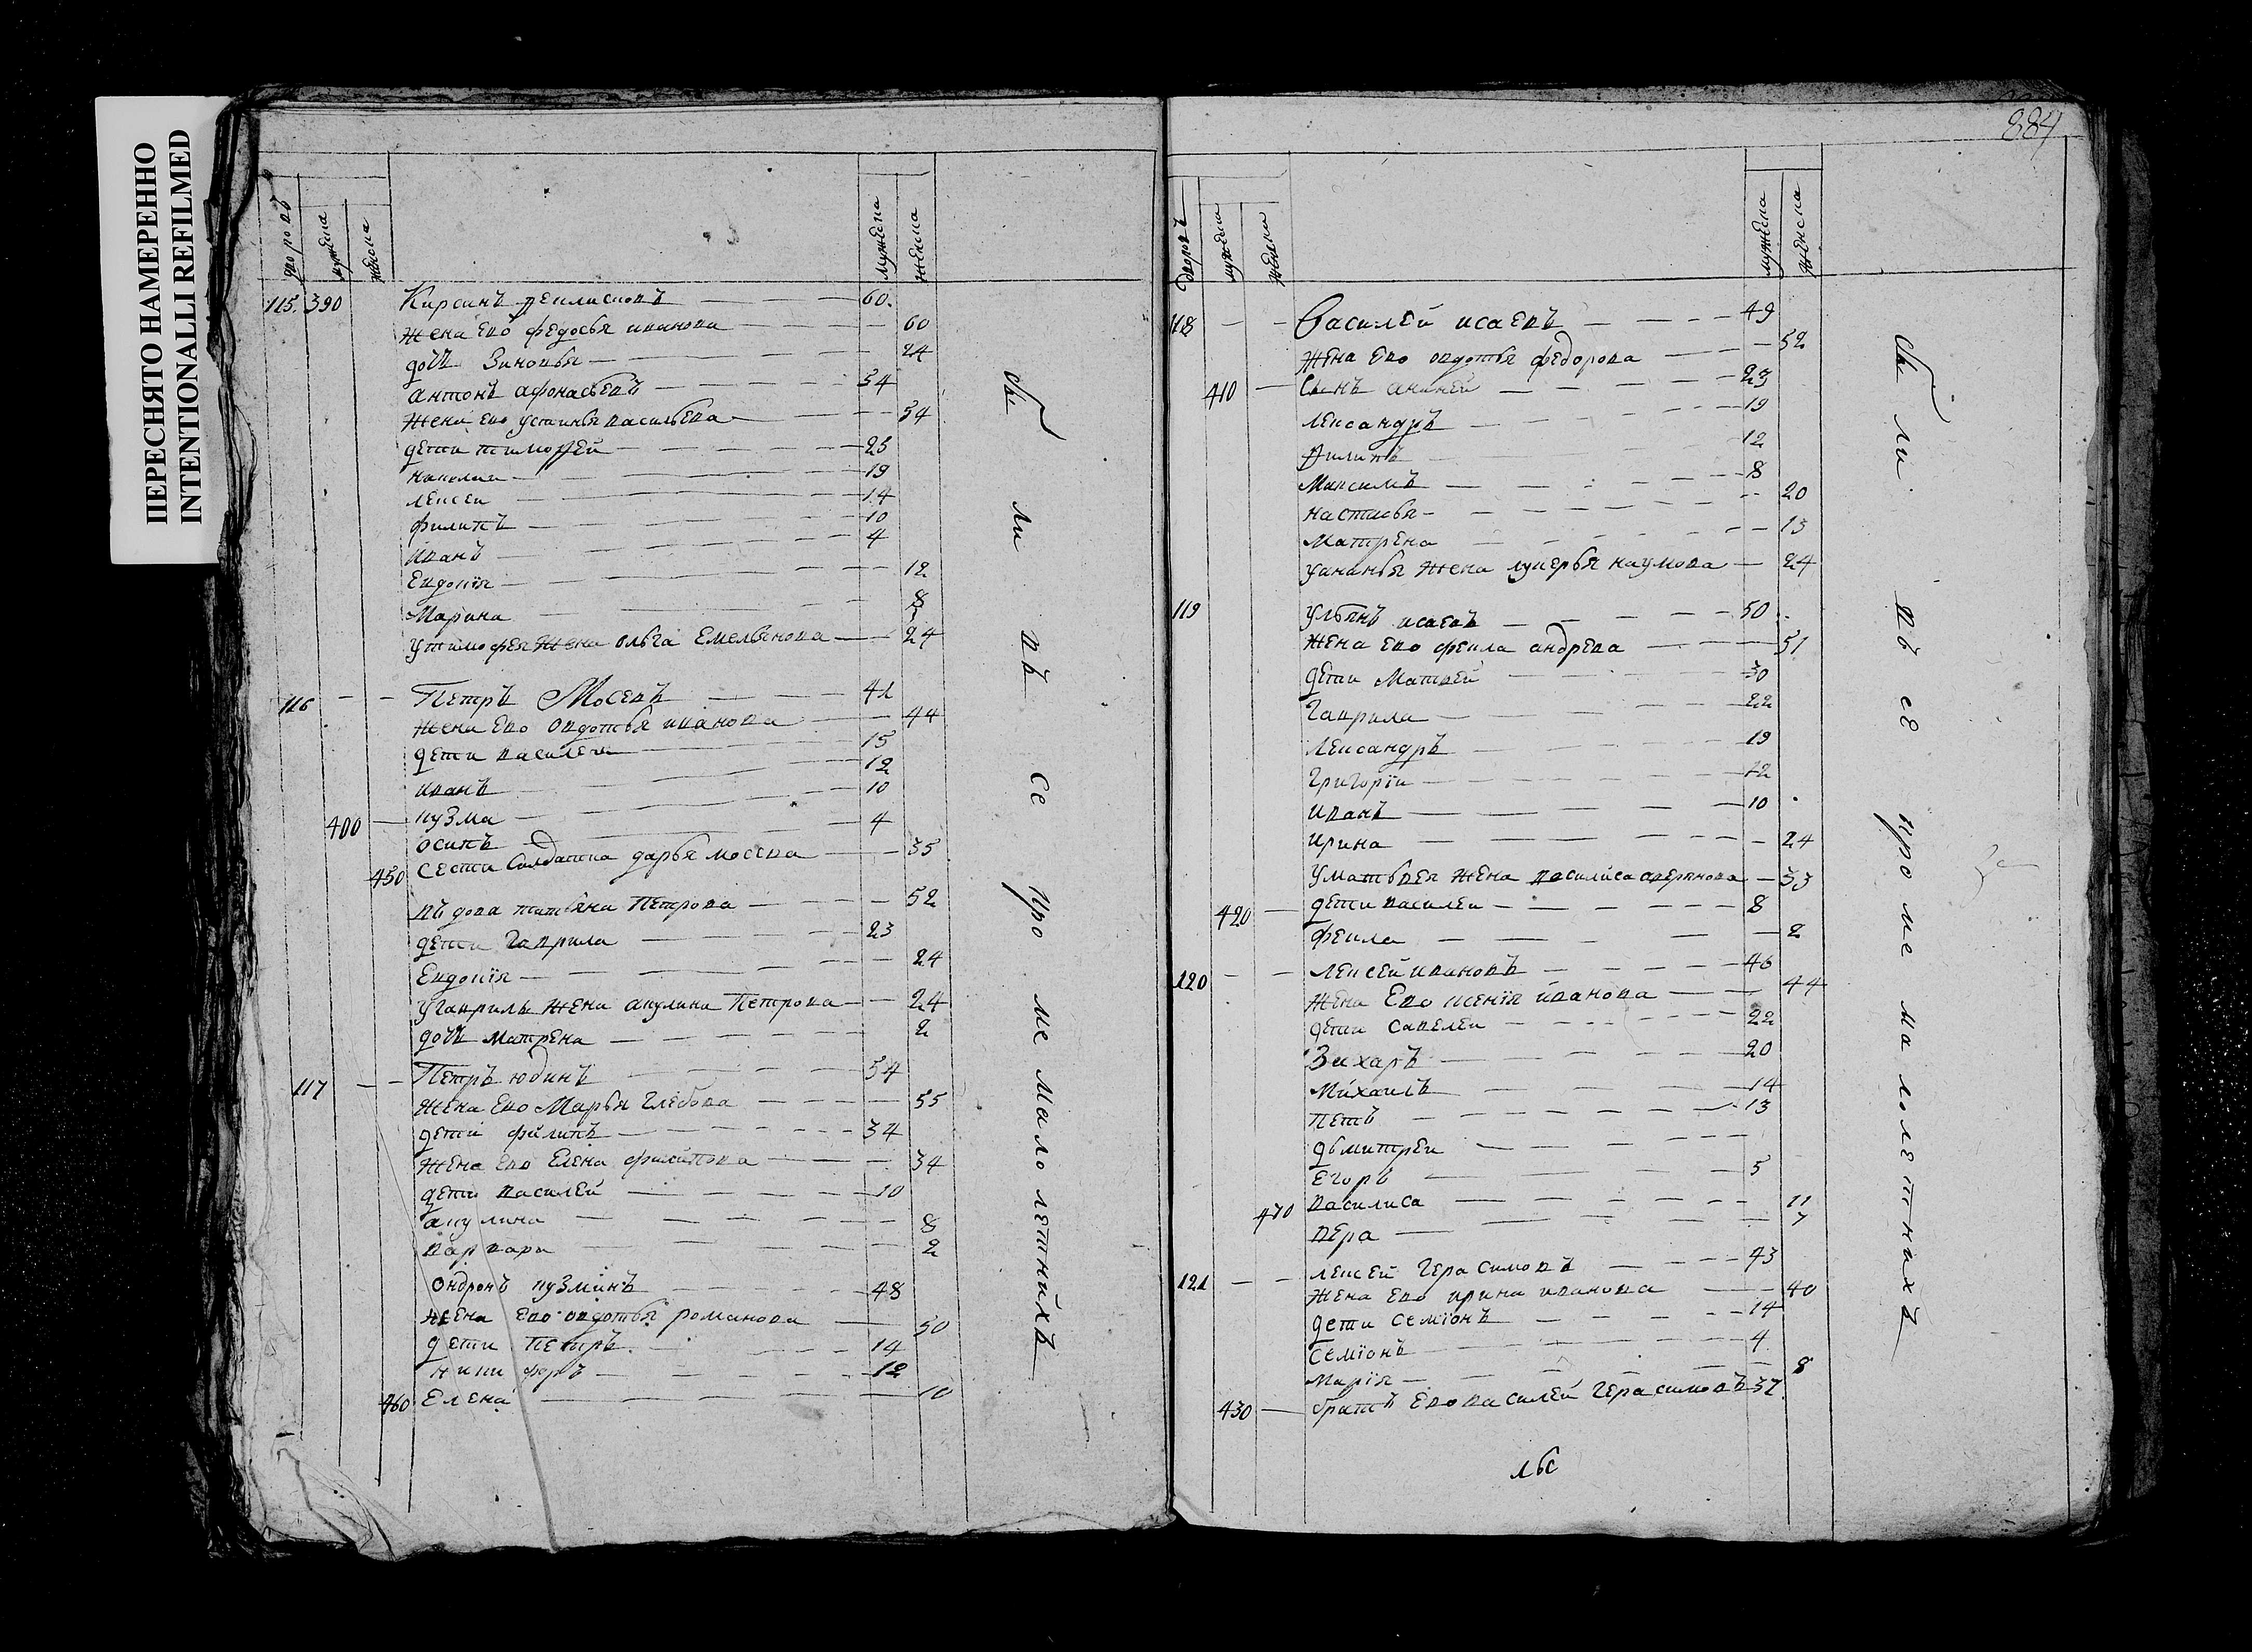 ПЕРЕСНЯТО НАМЕРЕННО
INTENTIONALLI REFILMED
884
дворовъ мужеска женска мужеска женска
115. 390 Кирсинъ 60.
жена ево федосья иванова 60
дочь Зиновья 24
антонъ афонасьевъ 54
жена ево устинья васильева 54
дети тимофей 25
николаи 19
лексеи 14
филипъ 10
иванъ 4
Евдокїя 12
Марина 8
утимофея жена ольга Емельянова 24
116 Петръ Мосевъ 41
жена ево овдотья иванова 44
дети василеи 15
иванъ 12
400 кузма 10
осипъ 4
450 сестра Солдатка дарья мосева 35
въдова татьяна Петрова 52
дети гаврила 23
Евдокїя 24
угаврилы жена акулина Петрова 24
дочь матрена 2
117 Петръ юдинъ 54
жена ево Марья глебова 55
дети филипъ 34
жена ево Елена филипова 34
дети василей 10
акулина 8
варвара 2
ондронъ кузминъ 48
жена ево овдотья романова 50
дети петръ 14
никифоръ 12
460 Елена 10
были въсе кроме малолетнихъ
дворовъ мужеска женска мужеска женска
118 Василей исаевъ 49
жена ево овдотья федорова 52
410 Сынъ ананеи 23
лександръ 19
Филипъ 12
Максимъ 8
настасья 20
Матрена 13
уананья жена лукерья наумова 24
119 ульянъ исаевъ 50
жена ево фекла андрева 51
дети Матвей 30
гаврила 22
лександръ 19
григорїи 12
иванъ 10
ирина 24
уматвея жена василиса аверянова 33
420 дети василеи 8
фекла 2
120 лексей ивановъ 46
жена Ево ксенїя иванова 44
дети савелеи 22
Захаръ 20
Михаилъ 14
петъ 13
дьмитреи
егоръ 5
470 василиса 11
вера 7
121 лексей герасимовъ 43
жена ево ирина иванова 40
дети семїонъ 14
семїонъ 4
марїя 8
430 братъ ево василей герасимовъ 37
были въсе кроме малолетнихъ